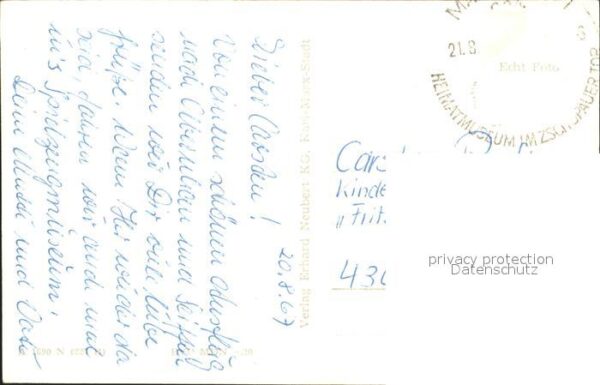 20.8.67
Lieber Carsten!
Von einem schönen Ausflug
nach Olbernhau und Seiffen
senden wir Dir viele liebe
Grüße. Wenn Ihr wieder da
seid, fahren wir auch mal
in's Spielzeugmuseum.
Deine Mutti und Vati
Verlag Erhard Neubert KG, Karl-Marx-Stadt
Echt Foto
21.8
HEIMATMUSEUM IM ZSCHOPAUER TOR
Car
Kinde
"Frit
430
privacy protection
Datenschutz